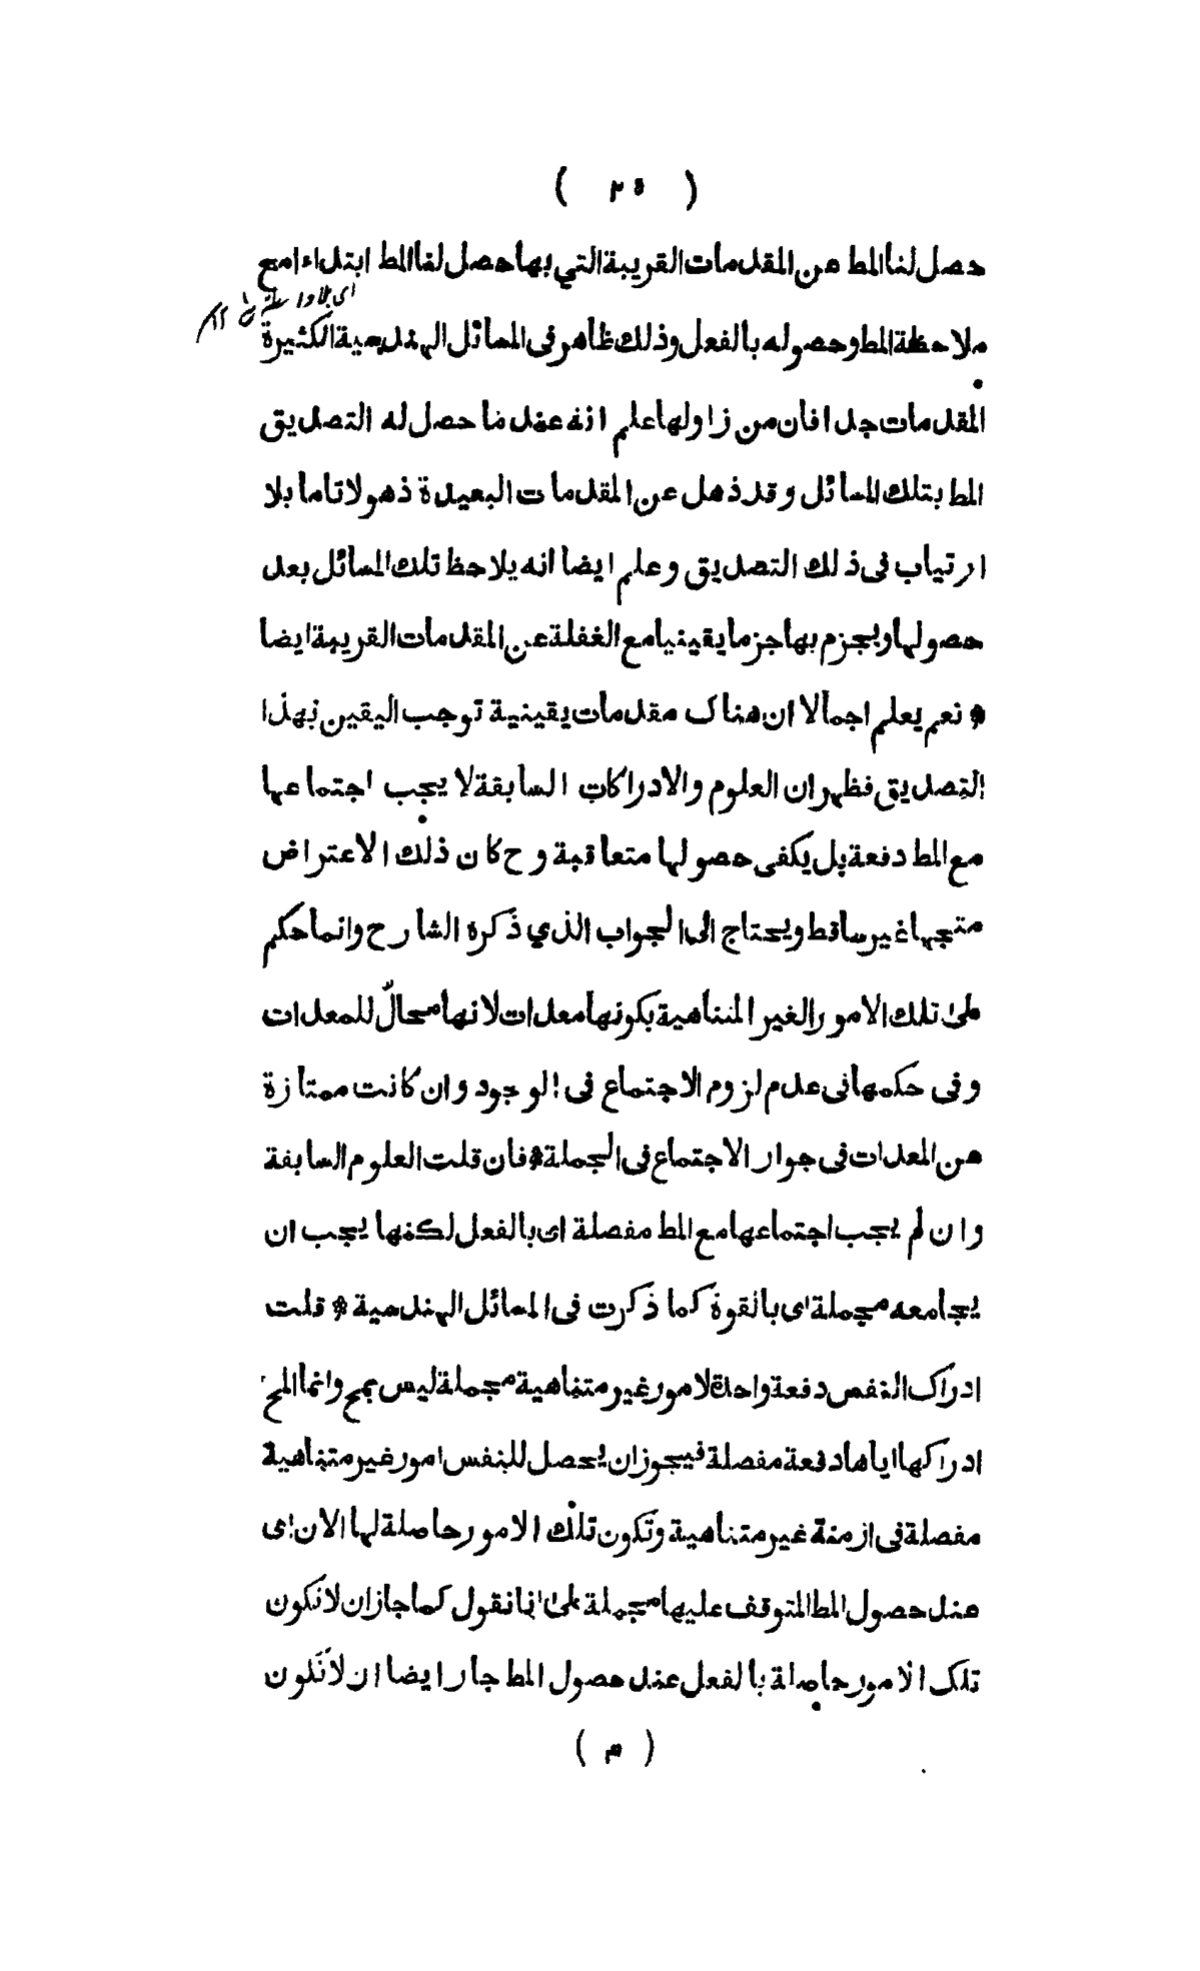 ( ٢٥ )
حصل لنا المط عن المقدمات القريبة التي بها حصل لنا المط ابتداء امع
ملاحظة المط وحصوله بالفعل وذلك ظاهر فى المسائل الهندسية الكثيرة
المقدمات جدا فان من زاولها علم انه عند ما حصل له التصديق
المط بتلك المسائل وقد ذهل عن المقدمات البعيدة ذهولا تاما بلا
ارتياب فى ذلك التصديق وعلم ايضا انه يلاحظ تلك المسائل بعد
حصولها ويجزم بها جزما يقينيا مع الغفلة عن المقدمات القريبة ايضا
* نعم يعلم اجمالا ان هناك مقدمات يقينية توجب اليقين بهذا
التصديق فظهر ان العلوم والادراكات السابقة لا يجب اجتماعها
مع المط دفعة بل يكفى حصولها متعاقبة وح كان ذلك الاعتراض
متجها غير ساقط ويحتاج الى الجواب الذي ذكره الشارح وانما حكم
على تلك الامور الغير المتناهية بكونها معدات لانها محالّ للمعدات
وفى حكمها فى عدم لزوم الاجتماع فى الوجود وان كانت ممتازة
عن المعدات فى جواز الاجتماع فى الجملة * فان قلت العلوم السابقة
وان لم يجب اجتماعها مع المط مفصلة اى بالفعل لكنها يجب ان
يجامعه مجملة اى بالقوة كما ذكرت فى المسائل الهندسية * قلت
ادراك النفس دفعة واحدة لامور غير متناهية مجملة ليس بمح وانما المح
ادراكها اياها دفعة مفصلة فيجوز ان يحصل للنفس امور غير متناهية
مفصلة فى ازمنة غير متناهية وتكون تلك الامور حاصلة لها الان اى
عند حصول المط المتوقف عليها مجملة على انا نقول كما جاز ان لا تكون
تلك الامور حاصلة بالفعل عند حصول المط جاز ايضا ان لا تكون
( م )